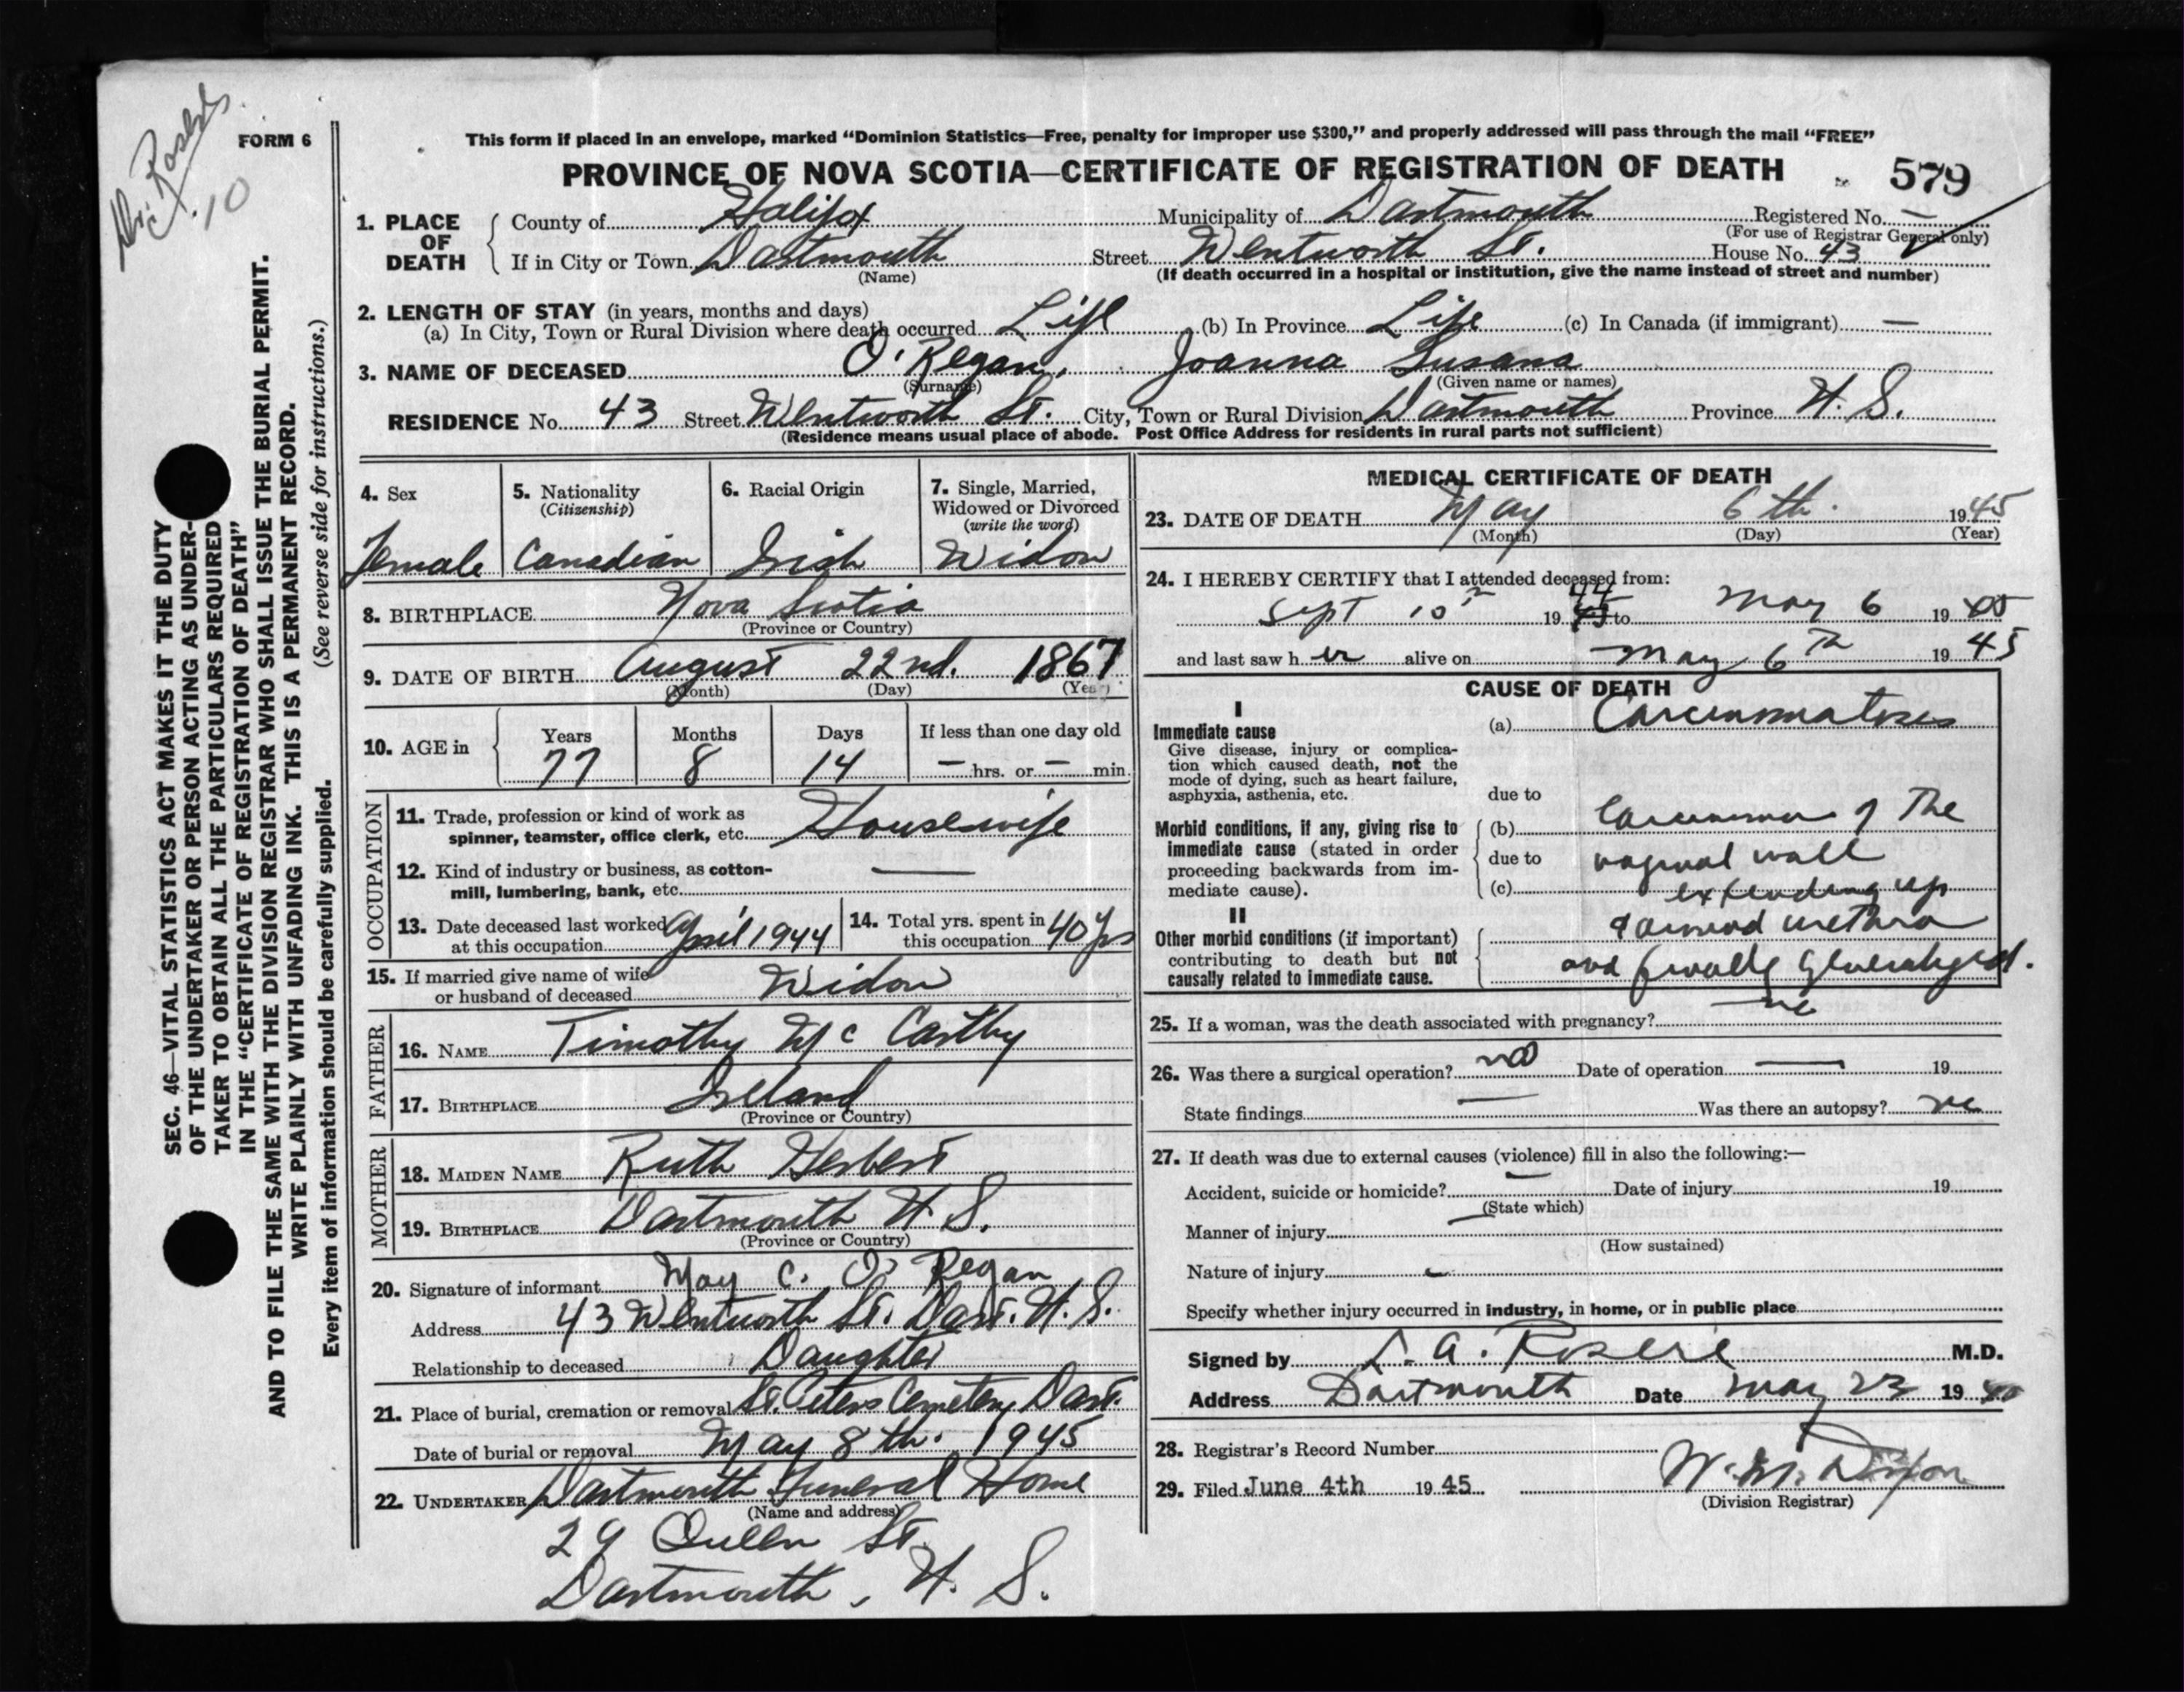 Dr. Rosere
10
FORM 6
This form if placed in an envelope, marked “Dominion Statistics—Free, penalty for improper use $300,” and properly addressed will pass through the mail “FREE”
PROVINCE OF NOVA SCOTIA—CERTIFICATE OF REGISTRATION OF DEATH
579
1. PLACE OF DEATH
County of Halifax Municipality of Dartmouth Registered No. —
(For use of Registrar General only)
If in City or Town Dartmouth Street Wentworth St. House No. 43
(Name) (If death occurred in a hospital or institution, give the name instead of street and number)
2. LENGTH OF STAY (in years, months and days)
(a) In City, Town or Rural Division where death occurred Life (b) In Province Life (c) In Canada (if immigrant) —
3. NAME OF DECEASED O'Regan, Joanna Susana
(Surname) (Given name or names)
RESIDENCE No. 43 Street Wentworth St. City, Town or Rural Division Dartmouth Province N. S.
(Residence means usual place of abode. Post Office Address for residents in rural parts not sufficient)
4. Sex
Female
5. Nationality
(Citizenship)
Canadian
6. Racial Origin
Irish
7. Single, Married,
Widowed or Divorced
(write the word)
Widow
8. BIRTHPLACE Nova Scotia
(Province or Country)
9. DATE OF BIRTH August 22nd. 1867
(Month) (Day) (Year)
10. AGE in
Years Months Days If less than one day old
77 8 14 — hrs. or — min.
OCCUPATION
11. Trade, profession or kind of work as
spinner, teamster, office clerk, etc. Housewife
12. Kind of industry or business, as cotton-
mill, lumbering, bank, etc. —
13. Date deceased last worked
at this occupation April 1944
14. Total yrs. spent in
this occupation 40 yrs
15. If married give name of wife
or husband of deceased Widow
FATHER
16. NAME Timothy Mc Carthy
17. BIRTHPLACE Ireland
(Province or Country)
MOTHER
18. MAIDEN NAME Ruth Herbert
19. BIRTHPLACE Dartmouth N. S.
(Province or Country)
20. Signature of informant May C. O'Regan
Address 43 Wentworth St. Dart. N. S.
Relationship to deceased Daughter
21. Place of burial, cremation or removal St. Peters Cemetery Dart.
Date of burial or removal May 8th. 1945
22. UNDERTAKER Dartmouth Funeral Home
(Name and address)
29 Queen St.
Dartmouth, N. S.
MEDICAL CERTIFICATE OF DEATH
23. DATE OF DEATH May 6th. 1945
(Month) (Day) (Year)
24. I HEREBY CERTIFY that I attended deceased from:
44
Sept 10th 19 45 to May 6 1945
and last saw h er alive on May 6th 1945
CAUSE OF DEATH
I
Immediate cause
Give disease, injury or complica-
tion which caused death, not the
mode of dying, such as heart failure,
asphyxia, asthenia, etc.
(a) Carcinomatosis
due to
Morbid conditions, if any, giving rise to
immediate cause (stated in order
proceeding backwards from im-
mediate cause).
(b) Carcinoma of the
due to vaginal wall
(c) extending up
II
Other morbid conditions (if important)
contributing to death but not
causally related to immediate cause.
around urethra
and finally generalized.
25. If a woman, was the death associated with pregnancy? no
26. Was there a surgical operation? no Date of operation — 19
State findings — Was there an autopsy? no
27. If death was due to external causes (violence) fill in also the following:—
Accident, suicide or homicide? — Date of injury 19
(State which)
Manner of injury —
(How sustained)
Nature of injury —
Specify whether injury occurred in industry, in home, or in public place
Signed by L. A. Rosere M.D.
Address Dartmouth Date May 23 19
28. Registrar's Record Number
29. Filed June 4th 1945 W. M. Dixon
(Division Registrar)
SEC. 46—VITAL STATISTICS ACT MAKES IT THE DUTY
OF THE UNDERTAKER OR PERSON ACTING AS UNDER-
TAKER TO OBTAIN ALL THE PARTICULARS REQUIRED
IN THE “CERTIFICATE OF REGISTRATION OF DEATH”
AND TO FILE THE SAME WITH THE DIVISION REGISTRAR WHO SHALL ISSUE THE BURIAL PERMIT.
WRITE PLAINLY WITH UNFADING INK. THIS IS A PERMANENT RECORD.
Every item of information should be carefully supplied. (See reverse side for instructions.)